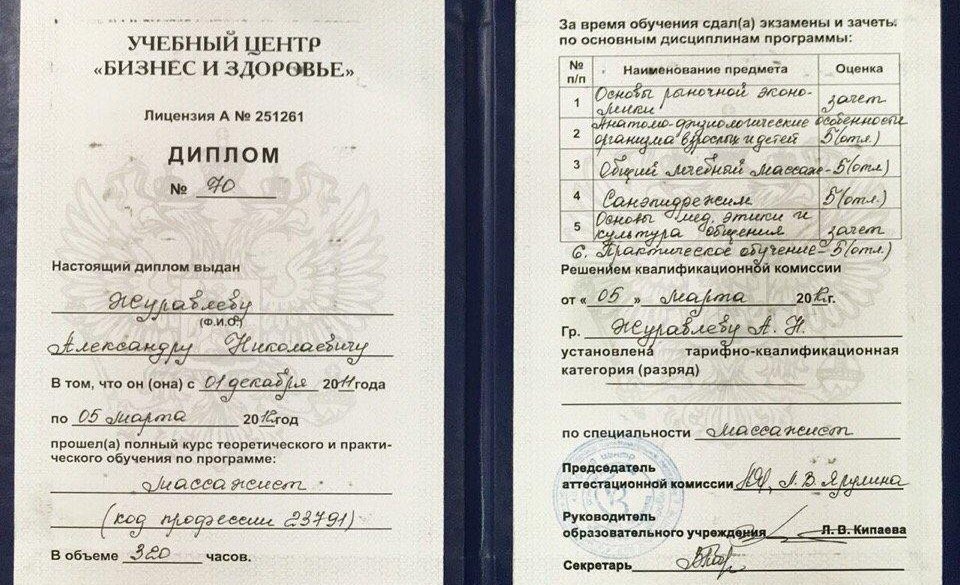 УЧЕБНЫЙ ЦЕНТР
«БИЗНЕС И ЗДОРОВЬЕ»
Лицензия А № 251261
ДИПЛОМ
№ 70
Настоящий диплом выдан
Журавлеву
(Ф.И.О.)
Александру Николаевичу
В том, что он (она) с 01 декабря 2011 года
по 05 марта 2012 год
прошел(а) полный курс теоретического и практи-
ческого обучения по программе:
массажист
(код профессии 23791)
В объеме 320 часов.
За время обучения сдал(а) экзамены и зачеты
по основным дисциплинам программы:
№ п/п Наименование предмета Оценка
1 Основы рыночной эконо-
мики зачет
2 Анатомо-физиологические особенности
организма взрослых и детей 5(отл.)
3 Общий лечебный массаж - 5(отл.)
4 Санэпидрежим 5(отл.)
5 Основы мед. этики и
культура общения зачет
6. Практическое обучение - 5(отл.)
Решением квалификационной комиссии
от « 05 » марта 2012 г.
Гр. Журавлеву А. Н.
установлена тарифно-квалификационная
категория (разряд)
по специальности массажист
Председатель
аттестационной комиссии Л. В. Ярулина
Руководитель
образовательного учреждения Л. В. Кипаева
Секретарь